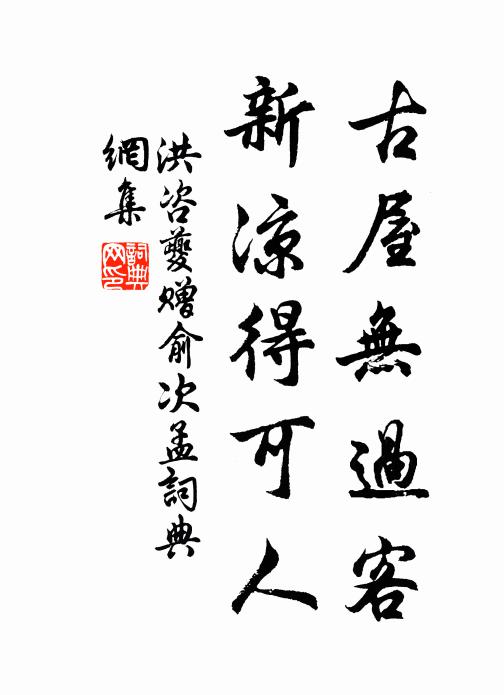 古屋無過客
新凉得可人
洪咨夔贈俞次孟詞典
網集
詞典
网印